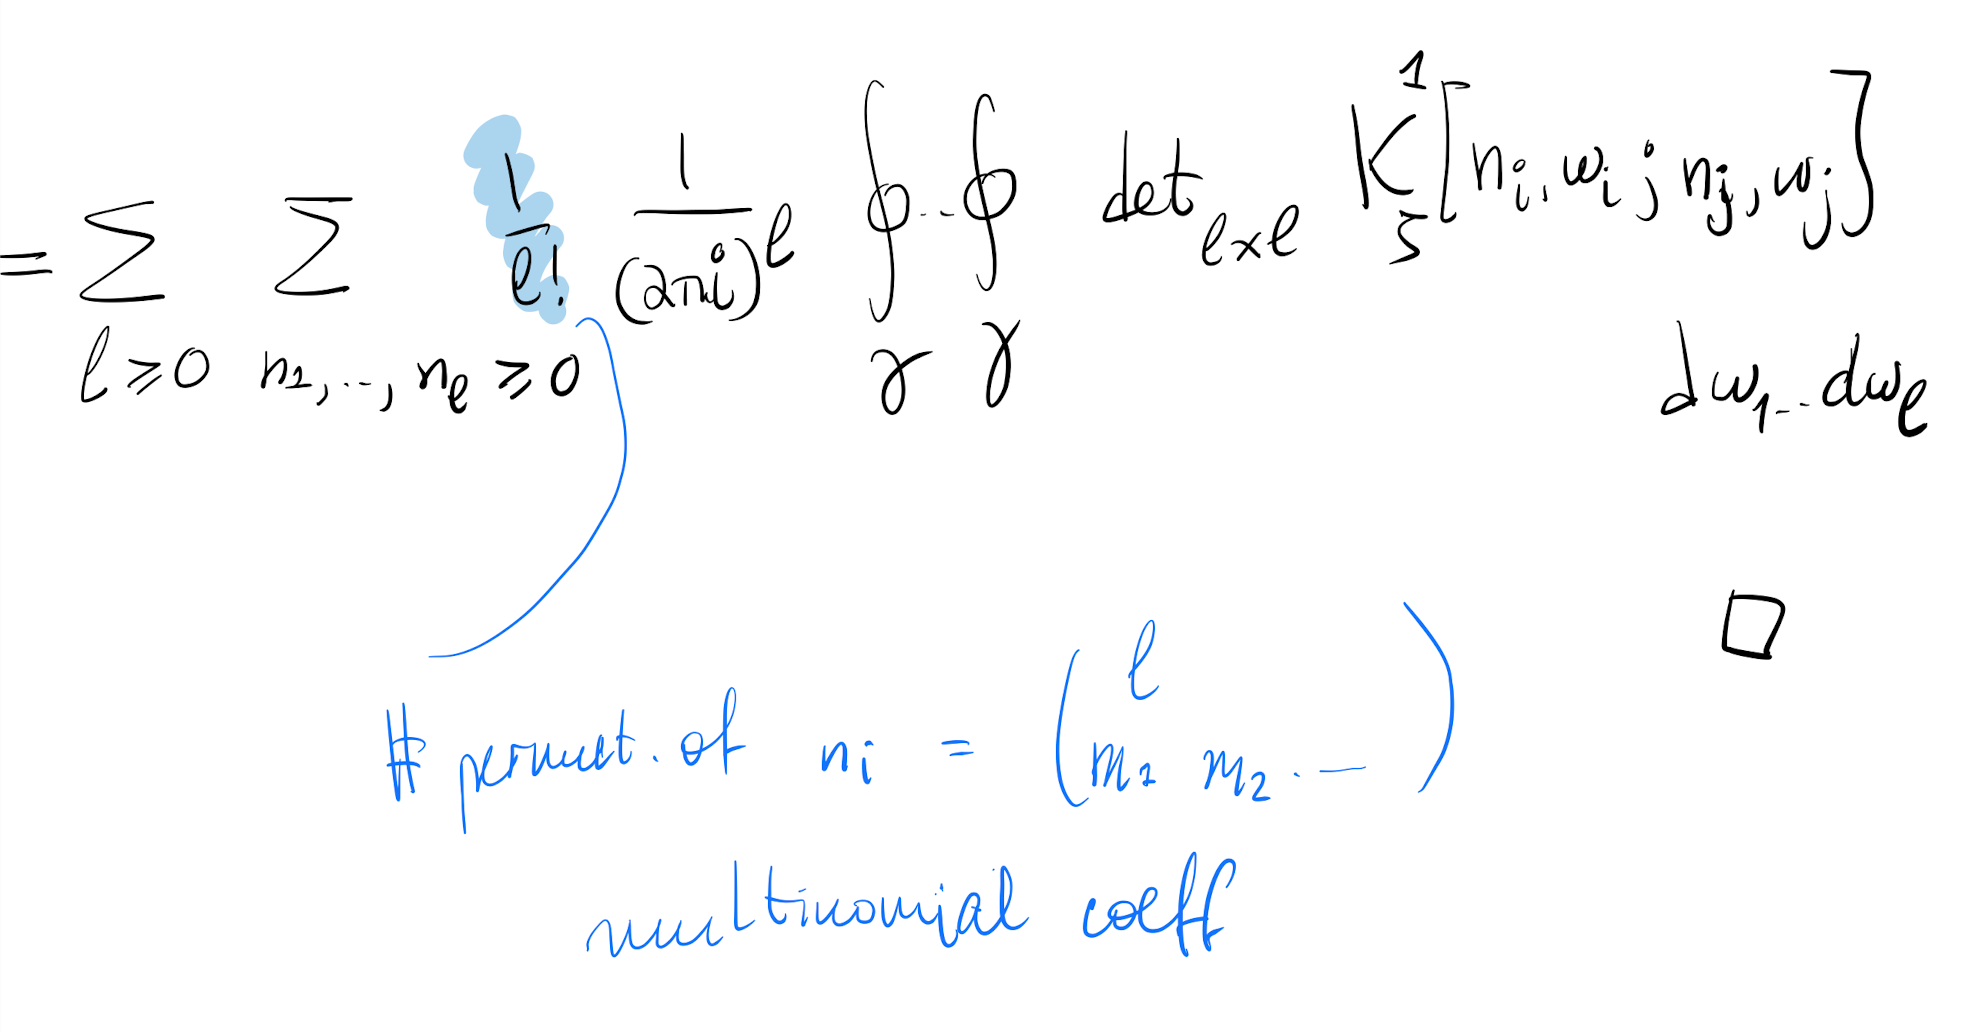 = ∑_{ℓ≥0} ∑_{n_1,..,n_ℓ≥0} \frac{1}{ℓ!} \frac{1}{(2πi)^ℓ} ∮_γ ... ∮_γ det_{ℓ×ℓ} K^1_ζ [n_i, w_i ; n_j, w_j]
dw_1 ... dw_ℓ
□
# permut. of n_i = \binom{ℓ}{m_1 m_2 ...}
multinomial coeff